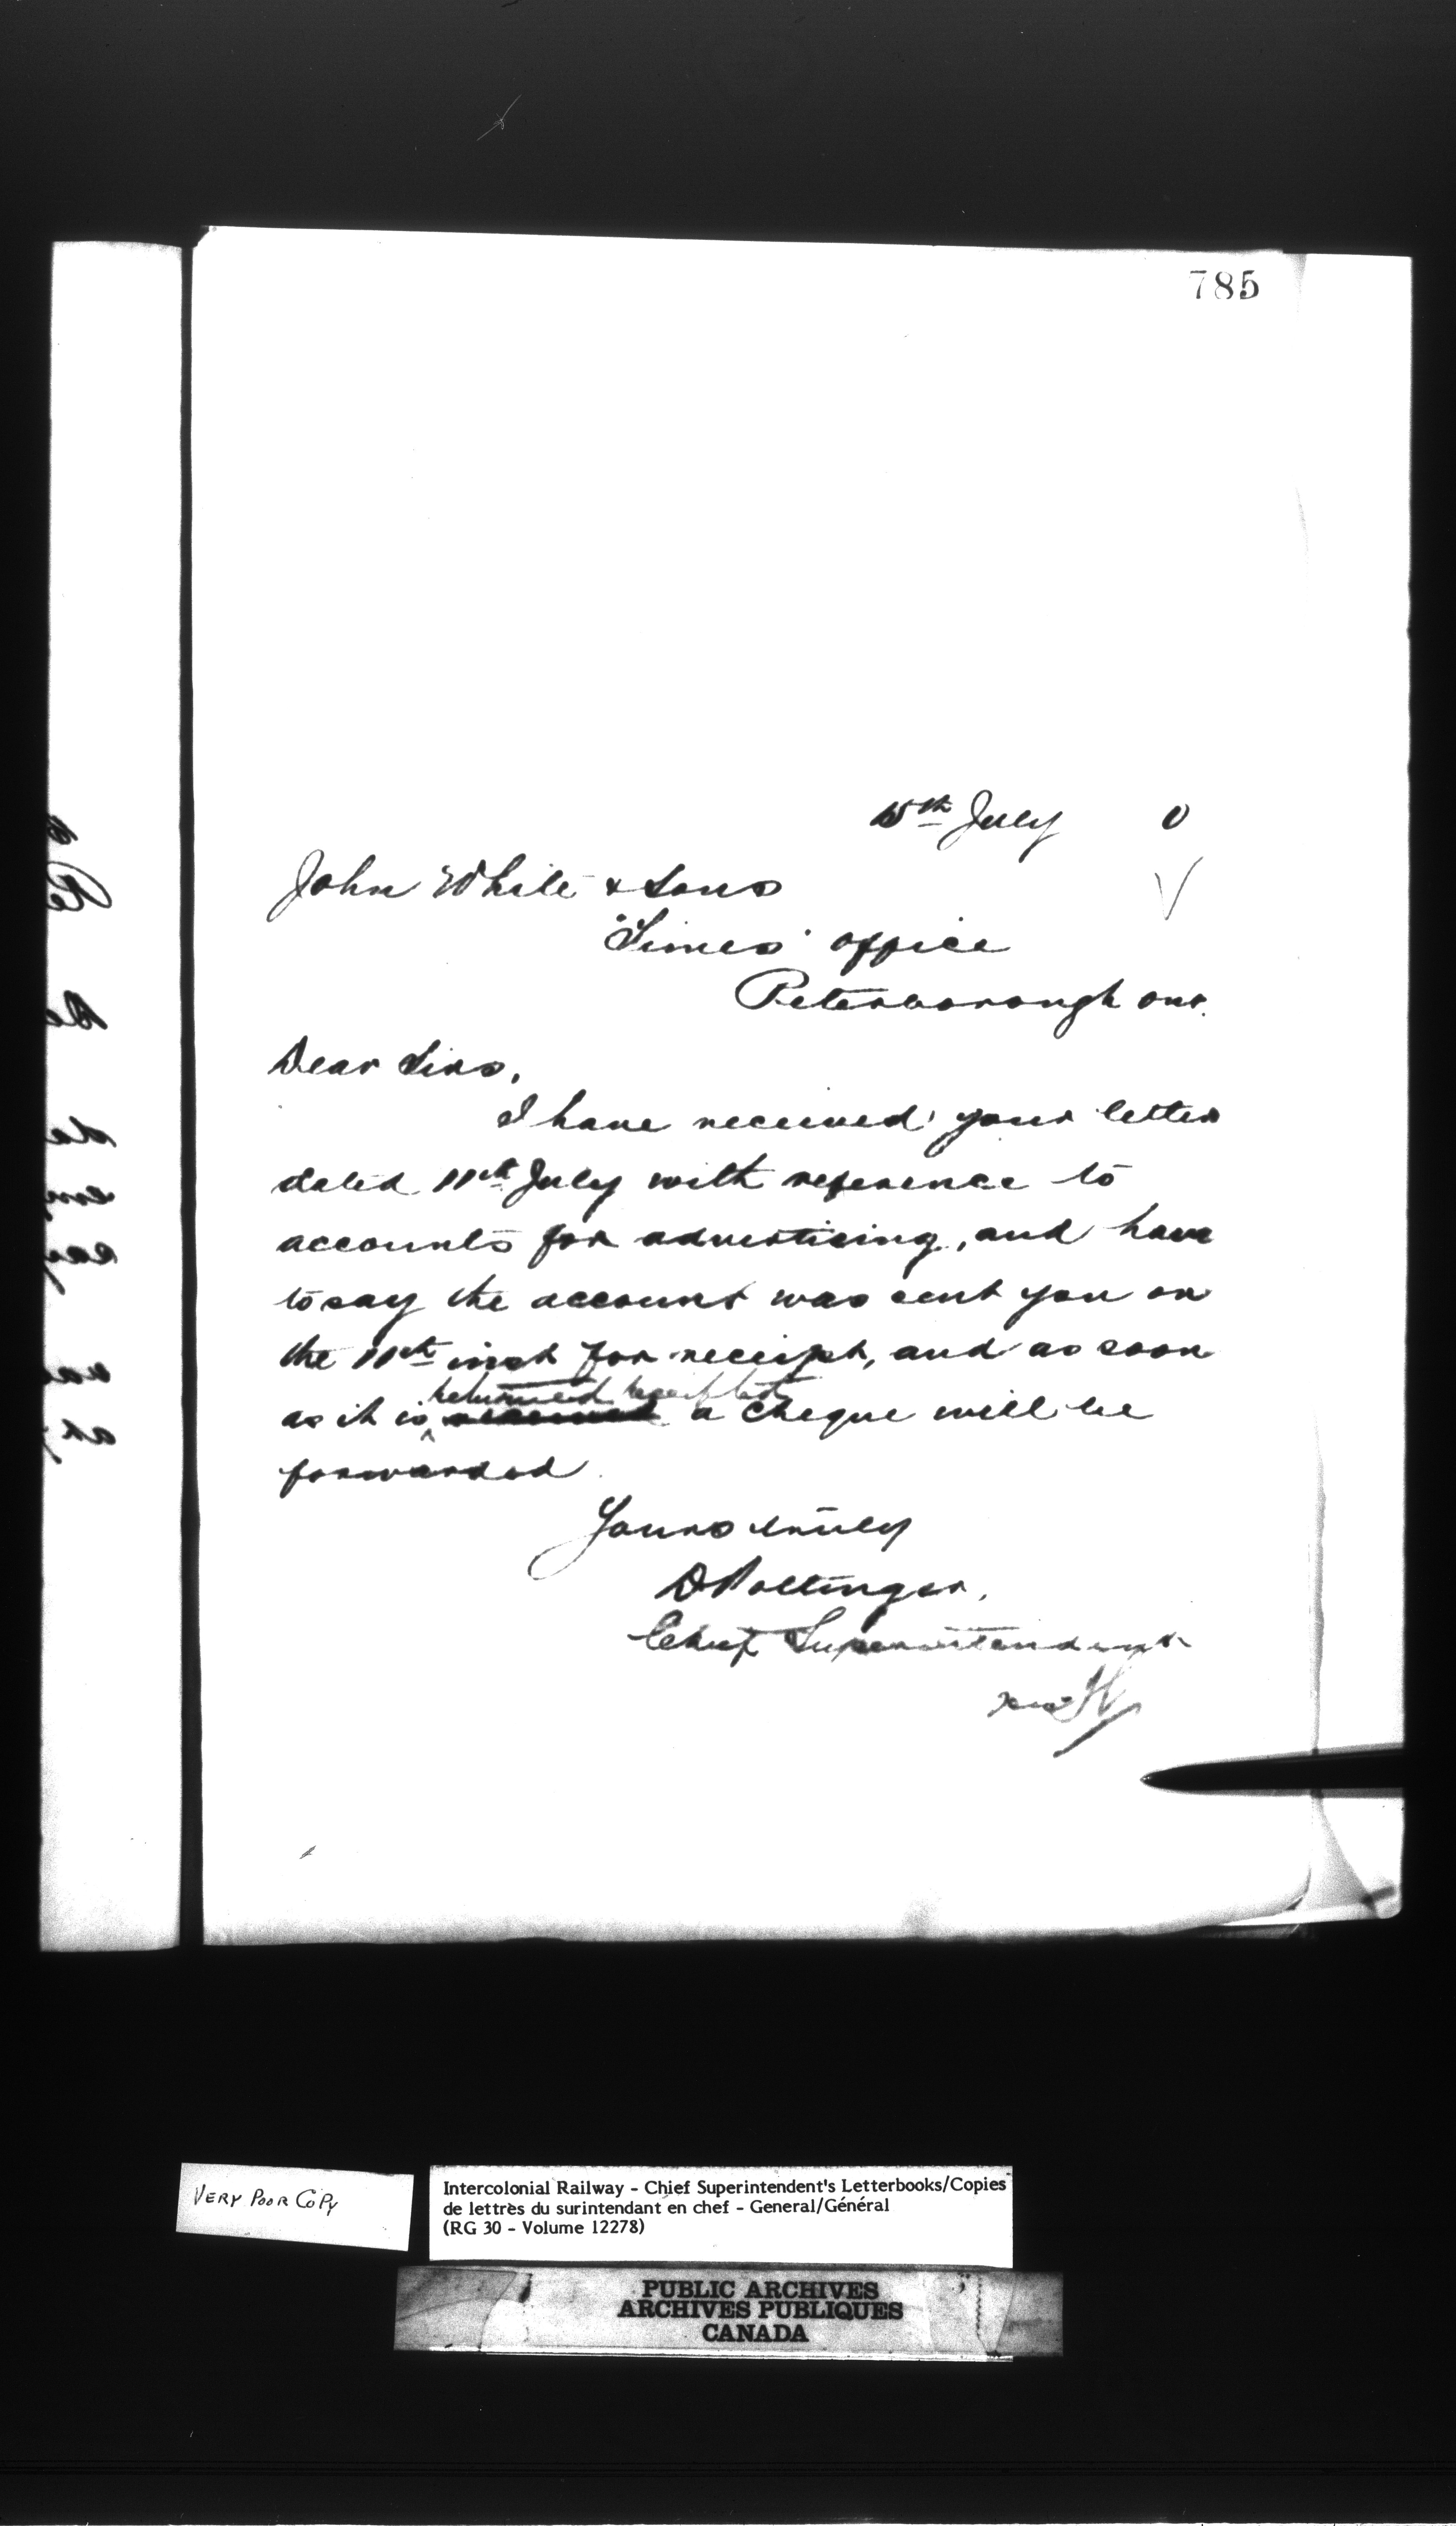 785
15th July 0
John White & Sons
"Times" office
Peterborough Ont.
Dear Sirs,
I have received your letter
dated 11th July with reference to
accounts for advertising, and have
to say the account was sent you on
the 11th inst for receipt, and as soon
returned receipted
as it is ^ received a cheque will be
forwarded.
Yours truly
D Pottinger,
Chief Superintendent
VERY POOR COPY
Intercolonial Railway - Chief Superintendent's Letterbooks/Copies
de lettres du surintendant en chef - General/Général
(RG 30 - Volume 12278)
PUBLIC ARCHIVES
ARCHIVES PUBLIQUES
CANADA